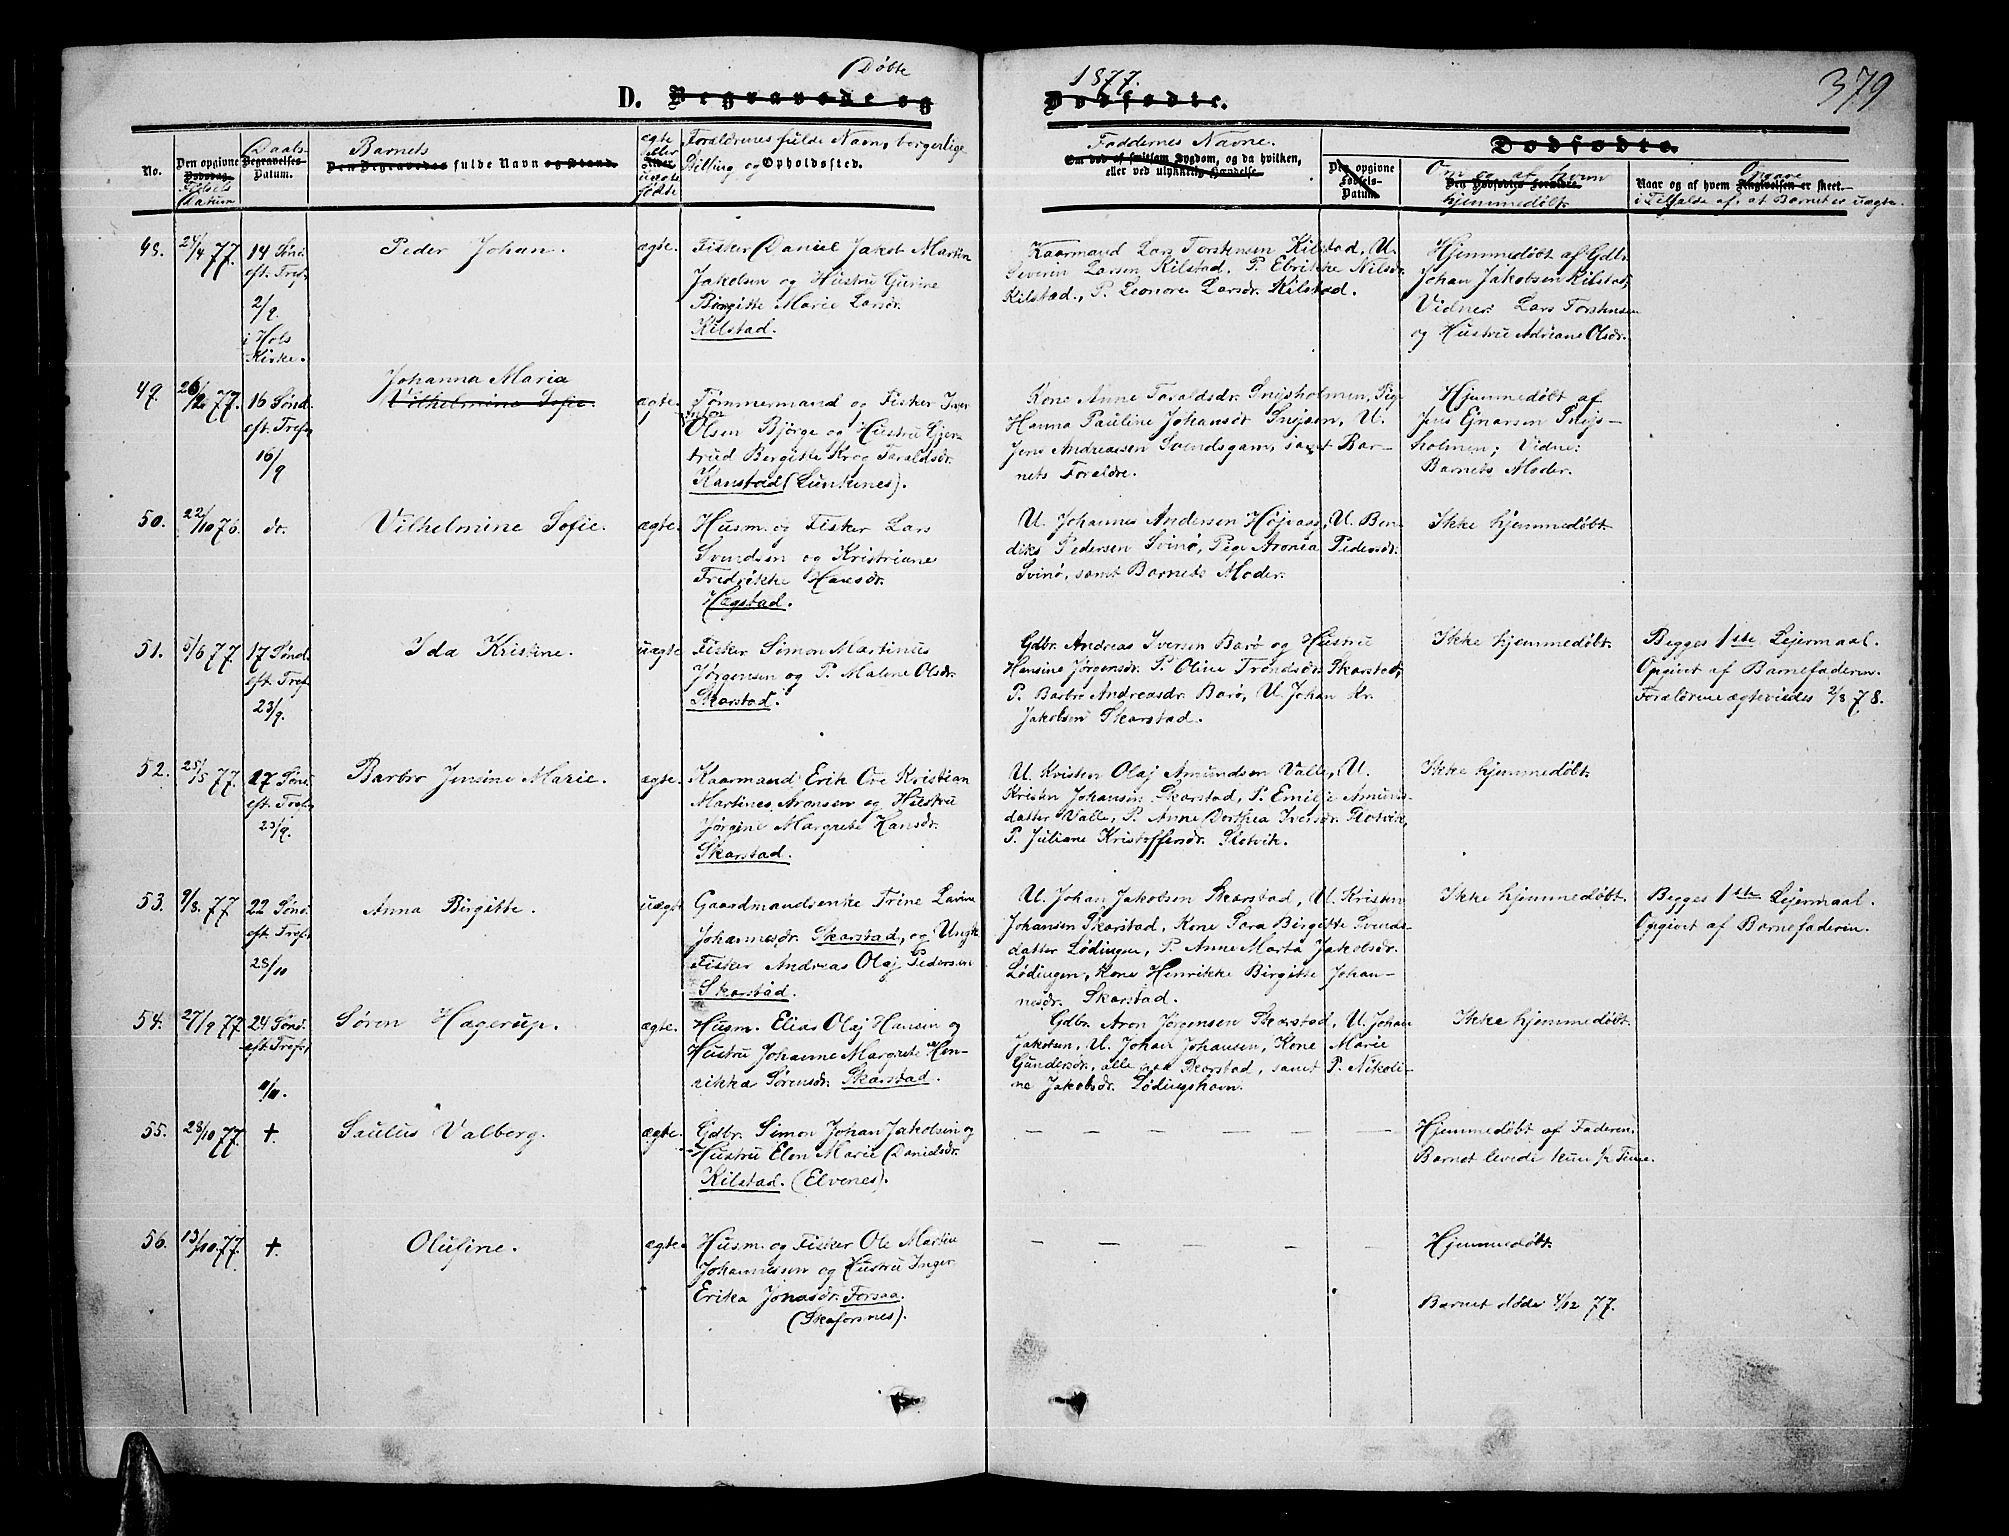 Døbte
D. Begravede og
1877.
Dødfødte.
379
No.
Den opgivne Dødsdag. Fødsels Datum
Daabs- Begravelses-Datum.
Barnets
Den Begravedes fulde Navn og Stand.
ægte eller Alder uægte fødte
Forældrenes fulde Navn, borgerlige
Stilling og Opholdssted.
Faddernes Navne.
Om død af smitsom Sygdom, og da hvilken,
eller ved ulykkelig Hændelse.
Dødfødte.
Den opgivne Fødsels-Datum.
Om og af hvem
Den Dødfødtes Forældre.
hjemmedøbt.
Opgave
Naar og af hvem Angivelsen er skeet.
i Tilfælde af, at Barnet er uægte.
48. 24/4 77. 14 Sønd. eft. Tref. 2/9. i Hols Kirke.
Peder Johan.
ægte.
Fisker Daniel Jakob Martin
Jakobsen og Hustru Gurine
Birgitte Marie Larsdr.
Kilstad.
Kaarmand Lars Torstensen Kilstad, U.
Severin Larsen Kilstad, P. Ebrikke Nilsdr.
Kilstad, P. Leonore Larsdr. Kilstad.
Hjemmedøbt af Gdbr.
Johan Jakobsen Kilstad;
Vidner: Lars Torstensen
og Hustru Adriane Olsdr.
49. 77. 16 Sønd. eft. Tref. 16/9
Johanna Maria
Vilhelmine Sofie.
ægte.
Tømmermand og Fisker Iver
Olsen Bjørge og Hustru Gjer-
trud Bergitte Krog Taraldsdr.
Kanstad (Lunkenes).
Kone Anne Taraldsdr. Snejsholmen, Pige
Hanna Pauline Johansdr Snejsen, U.
Jens Andreassen Svendsgam, samt Bar-
nets Forældre.
Hjemmedøbt af
Jens Ejnarsen Snejs-
holmen; Vidne:
Barnets Moder.
50. 22/10 76. do.
Vilhelmine Sofie.
ægte.
Husm. og Fisker Lars
Svendsen og Kristiane
Fredrikke Hansdr.
Hægstad.
U. Johannes Andersen Højaas, U. Ben-
diks Pedersen Svinø, Pige Aronea Pedersdr.
Svinø, samt Barnets Moder.
Ikke hjemmedøbt
51. 5/6 77. 17 Sønd. eft. Tref. 23/9.
Ida Kristine.
uægte
Fisker Simon Martinus
Jørgensen og P. Malene Olsdr.
Skarstad.
Gdbr. Andreas Iversen Barø og Hustru
Hansine Jørgensdr. P. Oline Trondsdr. Skarstad,
P. Barbro Andreasdr. Barø, U. Johan Kr.
Jakobsen Skarstad.
Ikke hjemmedøbt.
Begges 1ste Lejermaal.
Opgivet af Barnefaderen.
Forældrene ægteviedes 2/8 78.
52. 25/5 77. 17 Sønd. eft. Tref. 23/9.
Barbro Jensine Marie.
ægte.
Kaarmand Erik Ove Kristian
Martines Aronsen og Hustru
Jørgine Margrete Hansdr.
Skarstad.
U. Kristen Olaj Amundsen Valle, U.
Kristen Johansen Skarstad, P. Emilie Amunds-
datter Valle, P. Anne Dorthea Iversdr. Slotvik,
P. Juliane Kristoffersdr. Slotvik.
Ikke hjemmedøbt.
53. 9/8. 77 22 Sønd. eft. Tref. 28/10
Anna Birgitte.
uægte
Gaardmandsenke Trine Lavina
Johannesdr. Skarstad, og Ungk.
Fisker Andreas Olaj Pedersen
Skarstad.
U. Johan Jakobsen Skarstad, U. Kristen
Johansen Skarstad, Kone Sara Birgitte Svends-
datter Lødingen, P. Anne Marta Jakobsdr.
Lødingen, Kone Henrikke Birgitte Johan-
nesdr. Skarstad.
Ikke hjemmedøbt.
Begges 1ste Lejermaal.
Opgivet af Barnefaderen.
54. 27/9 77. 24 Sønd. eft. Tref.
Søren Hagerup.
ægte.
Husm. Elias Olaj Hansen og
Hustru Johanne Margrete Hen-
rikka Sørensdr. Skarstad.
Gdbr. Aron Jørgensen Skarstad, U. Johan
Jakobsen, U. Johan Johansen, Kone Marie
Gundersdr., alle paa Skarstad, samt P. Nikoli-
ne Jakobsdr. Lødingshavn.
Ikke hjemmedøbt.
55. 28/10 77. +.
Saulus Valberg.
ægte.
Gdbr. Simon Johan Jakobsen og
Hustru Elen Marie Danielsdr.
Kilstad. (Elvenes).
— — — — — — —
Hjemmedøbt af Faderen.
Barnet levede kun ½ Time.
56. 13/10 77. +.
Olufine.
ægte.
Husm. og Fisker Ole Martin
Johannessen og Hustru Inger
Erika Jonasdr. Forsaa.
(Skaforsnes).
— — — — —
Hjemmedøbt
Barnet døde 4/12 77.